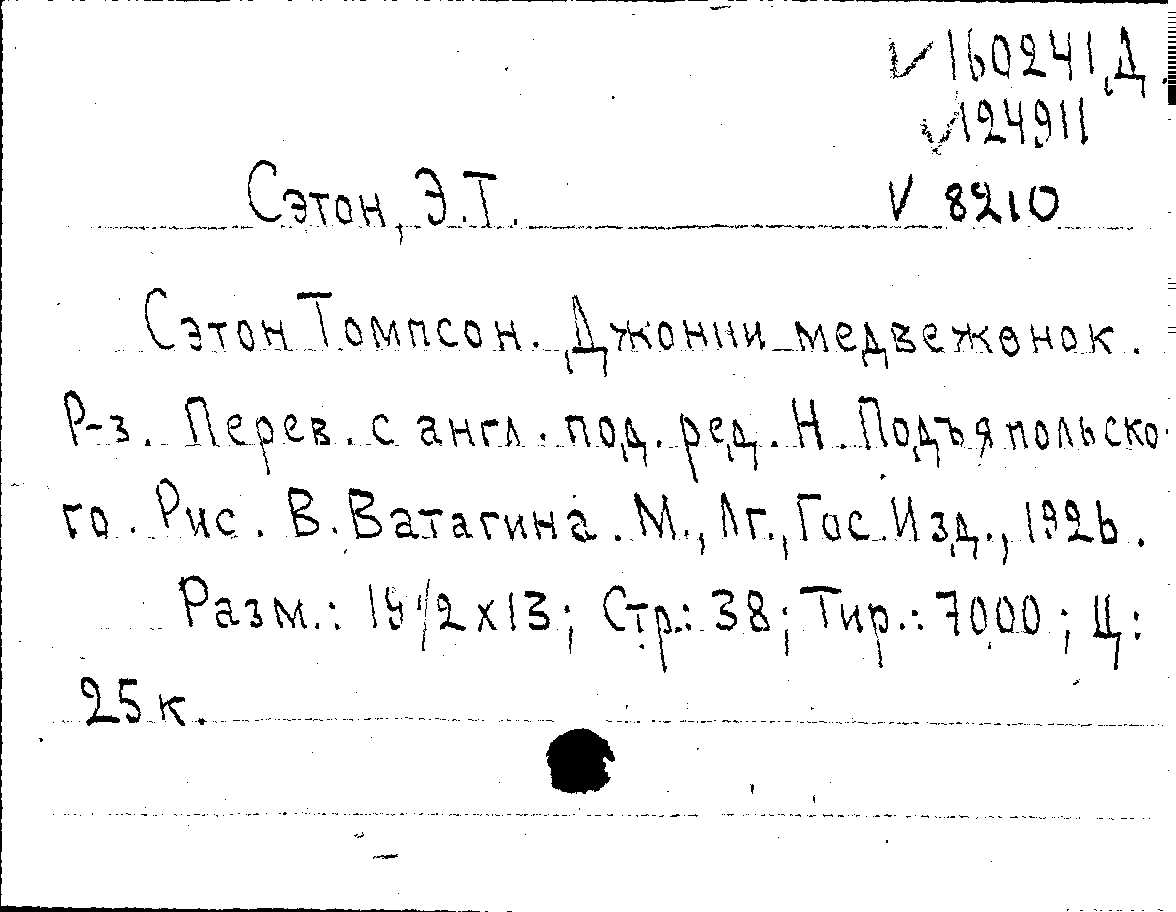 V 160241 Д
V 124911
Сэтон, Э.Т.
V 8210
Сэтон Томпсон. Джонни медвежонок.
Р-з. Перев. с англ. под. ред. Н. Подъяпольско-
го. Рис. В. Ватагина. М., Лг., Гос. Изд., 1926.
Разм.: 19 1/2 x 13; Стр.: 38; Тир.: 7000; Ц:
25 к.